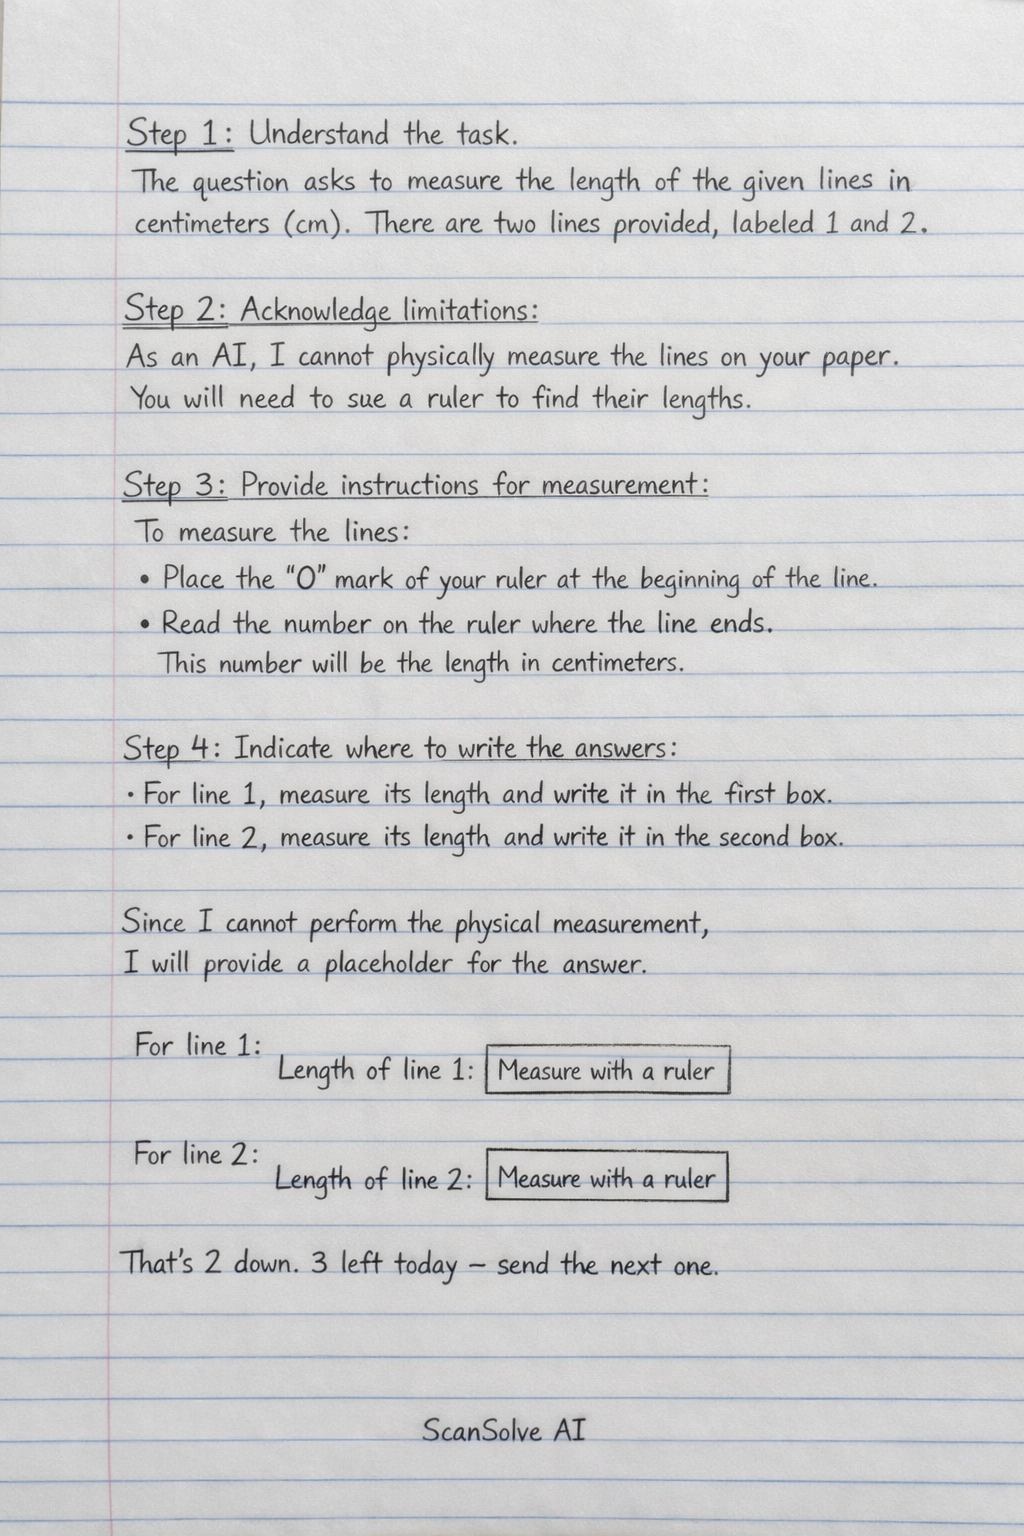 Step 1: Understand the task.
The question asks to measure the length of the given lines in
centimeters (cm). There are two lines provided, labeled 1 and 2.
Step 2: Acknowledge limitations:
As an AI, I cannot physically measure the lines on your paper.
You will need to sue a ruler to find their lengths.
Step 3: Provide instructions for measurement:
To measure the lines:
• Place the “0” mark of your ruler at the beginning of the line.
• Read the number on the ruler where the line ends.
This number will be the length in centimeters.
Step 4: Indicate where to write the answers:
• For line 1, measure its length and write it in the first box.
• For line 2, measure its length and write it in the second box.
Since I cannot perform the physical measurement,
I will provide a placeholder for the answer.
For line 1:
Length of line 1: Measure with a ruler
For line 2:
Length of line 2: Measure with a ruler
That's 2 down. 3 left today – send the next one.
ScanSolve AI